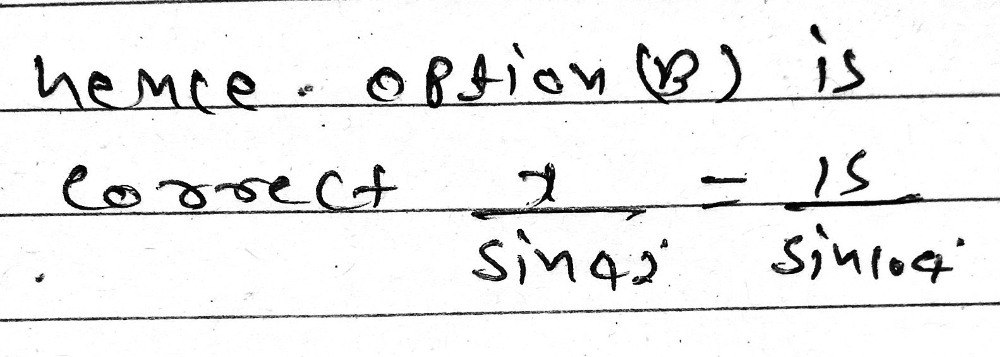 hence. option (B) is
correct x/sin42° = 15/sin104°